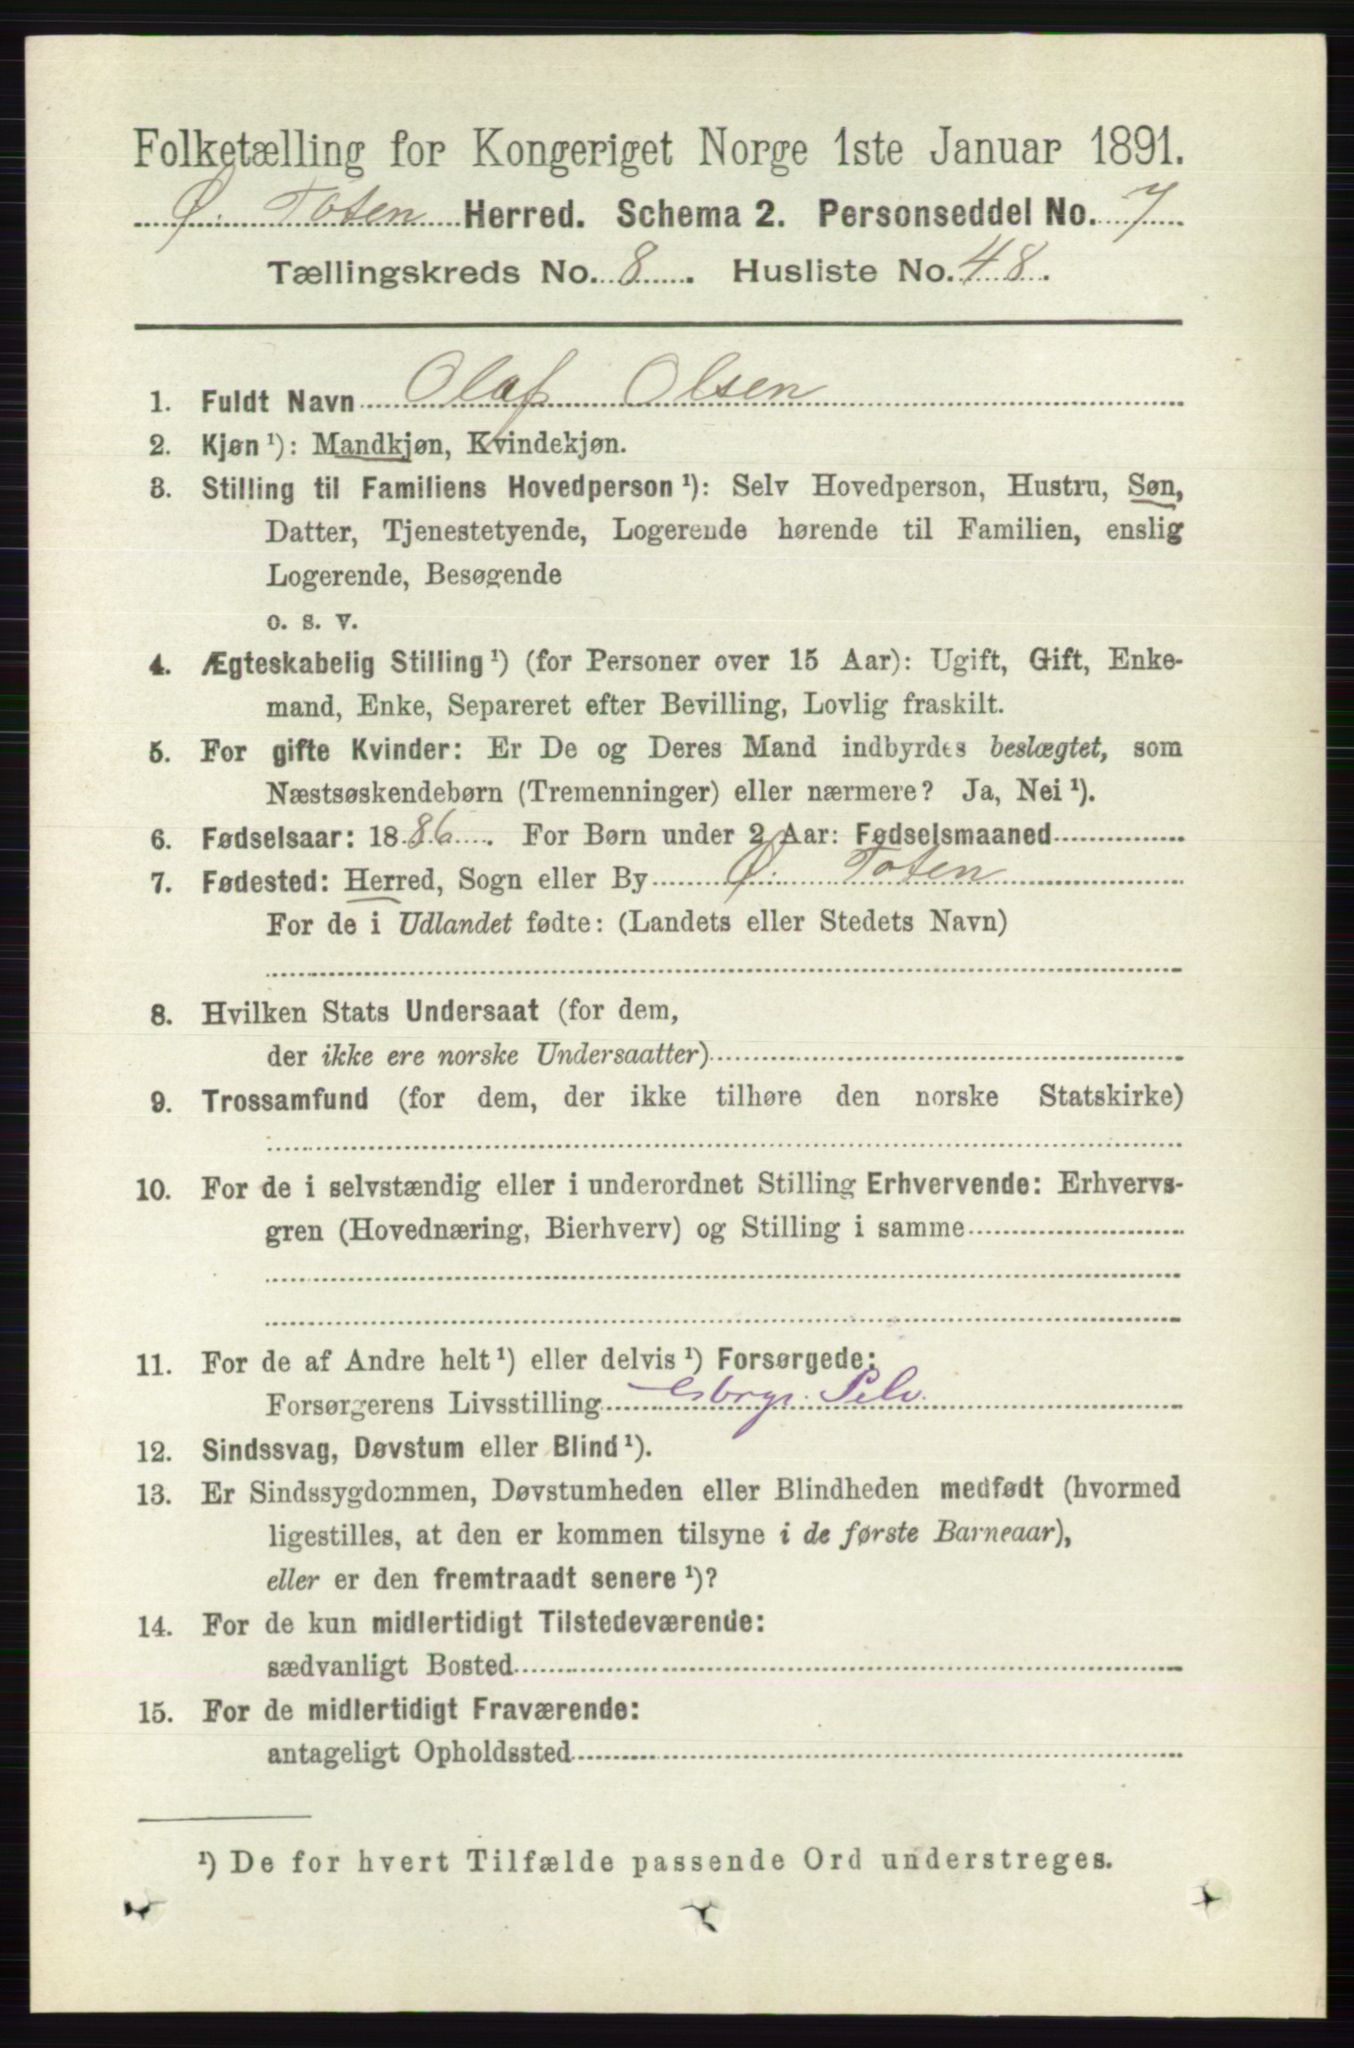 Folketælling for Kongeriget Norge 1ste Januar 1891.
Ø. Toten Herred. Schema 2. Personseddel No. 7
Tællingskreds No. 8. Husliste No. 48.
1. Fuldt Navn Olaf Olsen
2. Kjøn ¹): Mandkjøn, Kvindekjøn.
3. Stilling til Familiens Hovedperson ¹): Selv Hovedperson, Hustru, Søn,
Datter, Tjenestetyende, Logerende hørende til Familien, enslig
Logerende, Besøgende
o. s. v.
4. Ægteskabelig Stilling ¹) (for Personer over 15 Aar): Ugift, Gift, Enke-
mand, Enke, Separeret efter Bevilling, Lovlig fraskilt.
5. For gifte Kvinder: Er De og Deres Mand indbyrdes beslægtet, som
Næstsøskendebørn (Tremenninger) eller nærmere? Ja, Nei ¹).
6. Fødselsaar: 1886. For Børn under 2 Aar: Fødselsmaaned
7. Fødested: Herred, Sogn eller By Ø. Toten
For de i Udlandet fødte: (Landets eller Stedets Navn)
8. Hvilken Stats Undersaat (for dem,
der ikke ere norske Undersaatter)
9. Trossamfund (for dem, der ikke tilhøre den norske Statskirke)
10. For de i selvstændig eller i underordnet Stilling Erhvervende: Erhvervs-
gren (Hovednæring, Bierhverv) og Stilling i samme
11. For de af Andre helt ¹) eller delvis ¹) Forsørgede:
Forsørgerens Livsstilling
12. Sindssvag, Døvstum eller Blind ¹).
13. Er Sindssygdommen, Døvstumheden eller Blindheden medfødt (hvormed
ligestilles, at den er kommen tilsyne i de første Barneaar),
eller er den fremtraadt senere ¹)?
14. For de kun midlertidigt Tilstedeværende:
sædvanligt Bosted
15. For de midlertidigt Fraværende:
antageligt Opholdssted
¹) De for hvert Tilfælde passende Ord understreges.